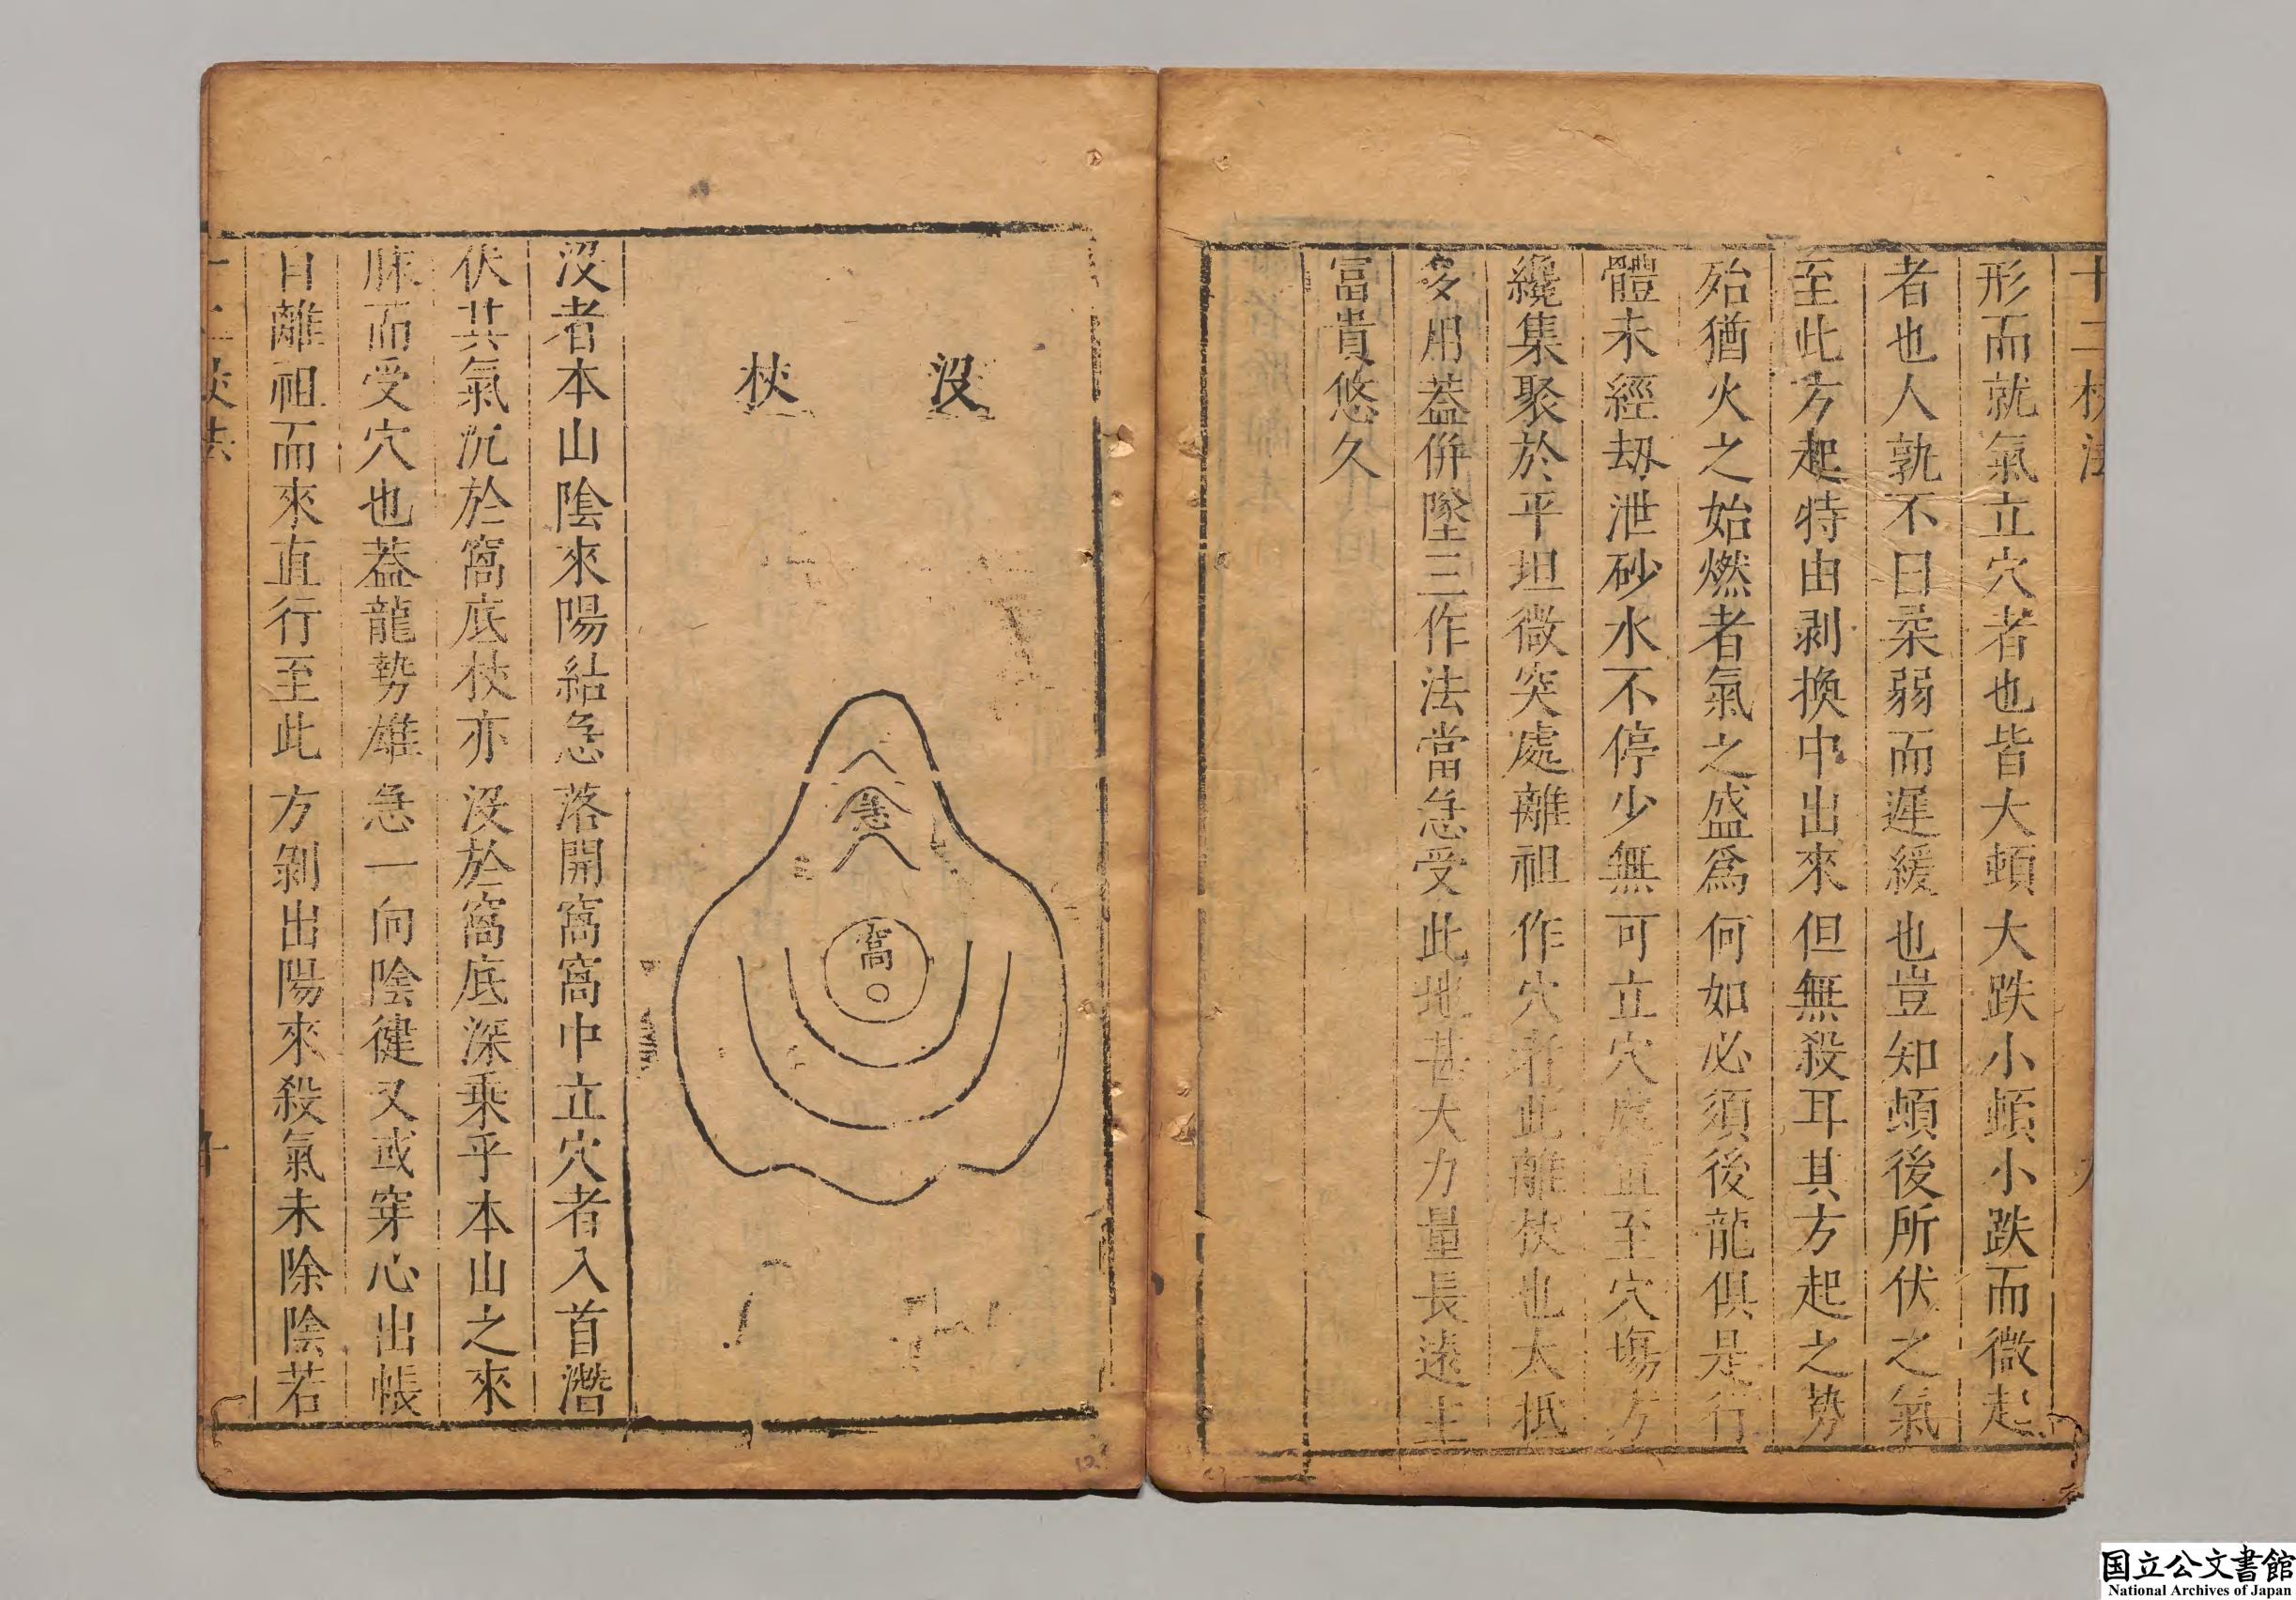 十二杖法 九
形而就氣立穴者也皆大頓大跌小頓小跌而微起
者也人孰不曰柔弱而遲緩也豈知頓後所伏之氣
至此方起特由剥換中出來但無殺耳其方起之勢
殆猶火之始燃者氣之盛爲何如必須後龍俱是行
體未經刼泄砂水不停少無可立穴處直至穴塲方
纔集聚於平坦微突處離祖作穴者此離杖也太抵
多用葢倂墜三作法當急受此地甚大力量長遠主
富貴悠久
沒杖
急
窩
沒者本山陰來陽結急落開窩窩中立穴者入首潛
伏其氣沉於窩底杖亦沒於窩底深乗乎本山之來
脉而受穴也葢龍勢雄急一向陰徤又或穿心出帳
自離祖而來直行至此方剝出陽來殺氣未除陰若
十二杖法 十
12
国立公文書館
National Archives of Japan